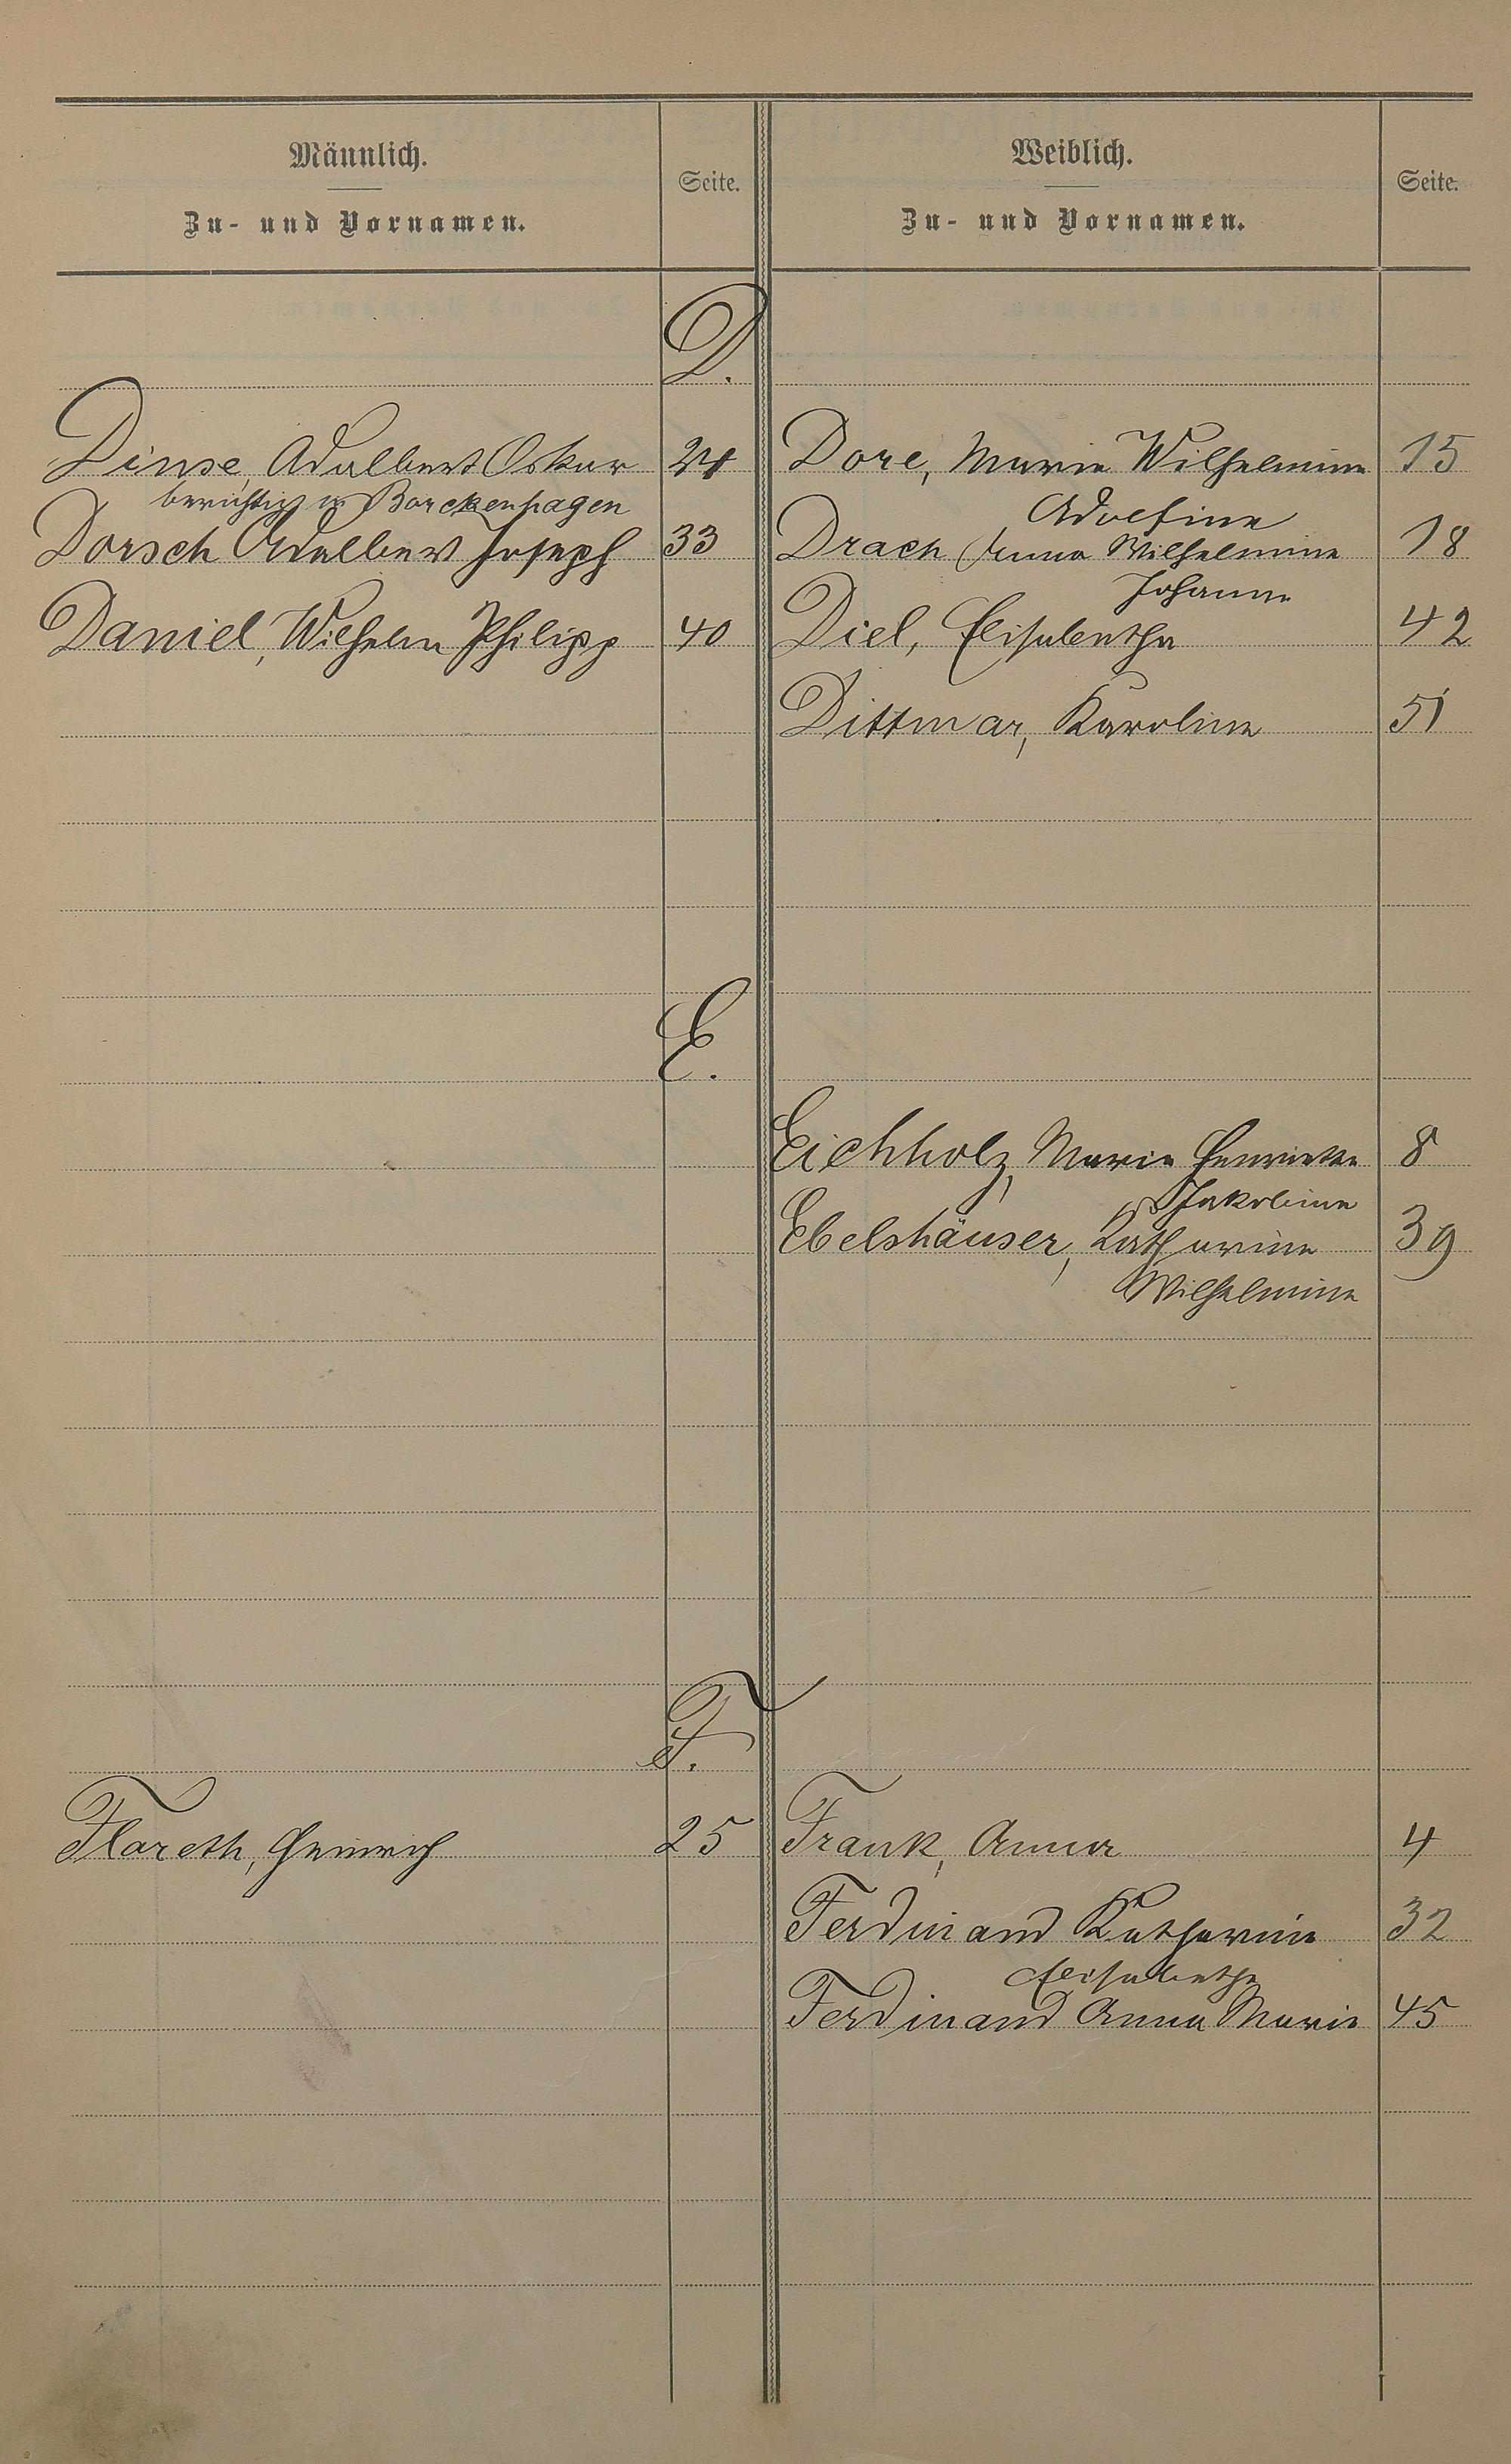 Männlich.
Zu- und Vornamen.
Seite.
Weiblich.
Zu- und Vornamen.
Seite.
D.
Dinse, Adalbert Oskar 24
berichtigt in Borckenhagen
Dorsch Adalbert Joseph 33
Daniel, Wilhelm Philipp 40
Dore, Marie Wilhelmine 15
Adolfine
Drach Anna Wilhelmine 18
Johanne
Diel, Elisabetha 42
Dittmar, Karoline 51
E.
Eichholz, Marie Henriette 8
Jakobine
Ebelshäuser, Katharine 39
Wilhelmine
F.
Flareth, Heinrich 25
Frank, Anna 4
Ferdinand Katharine 32
Elisabetha
Ferdinand Anna Marie 45